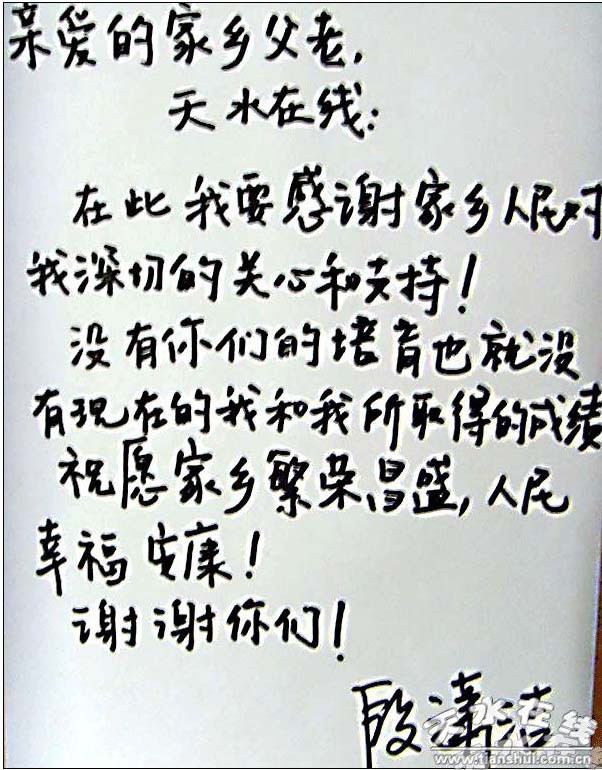 亲爱的家乡父老,
天水在线:
在此我要感谢家乡人民对
我深切的关心和支持!
没有你们的培育也就没
有现在的我和我所取得的成绩
祝愿家乡繁荣昌盛,人民
幸福安康!
谢谢你们!
段潇洁
天水在线
www.tianshui.com.cn